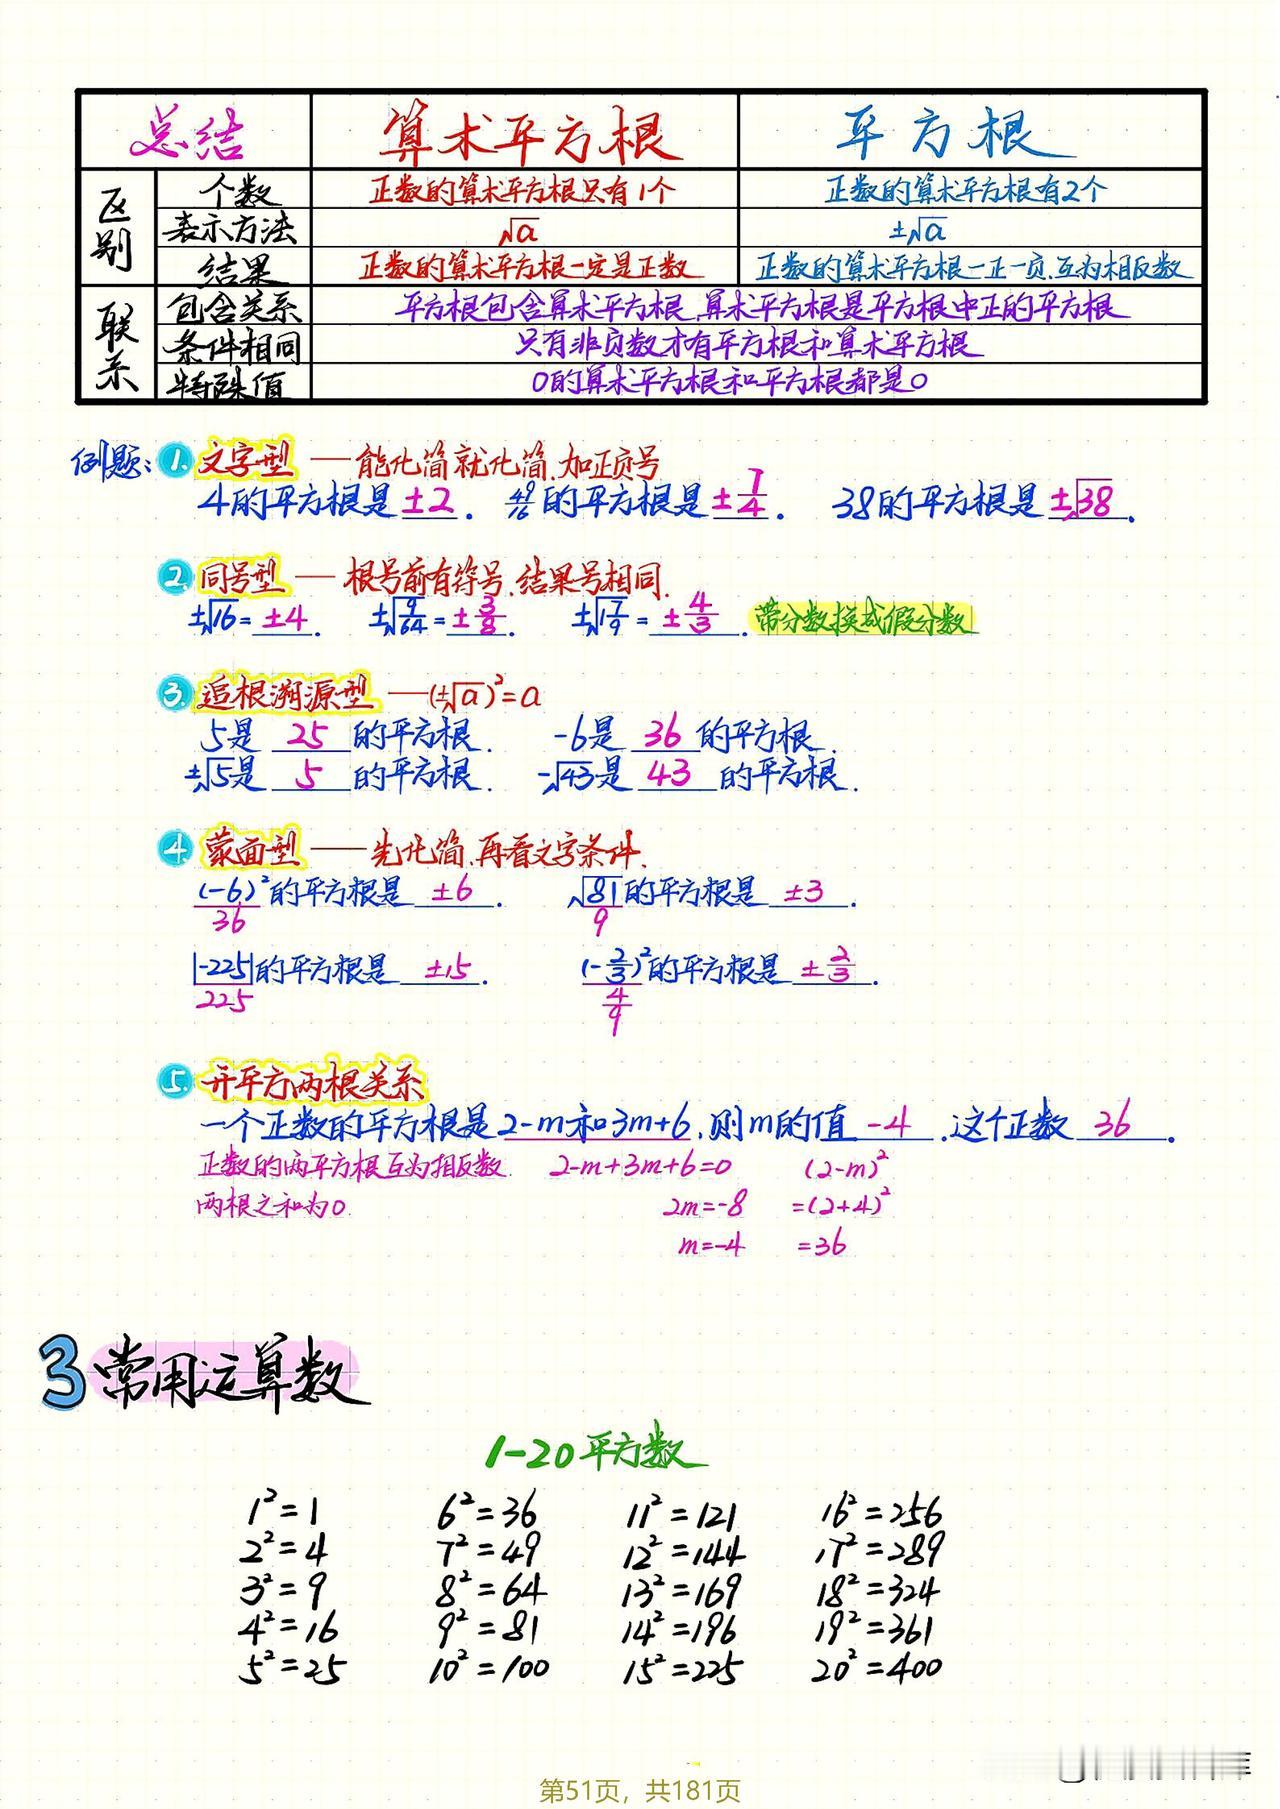 总结 算术平方根 平方根
区别 个数 正数的算术平方根只有1个 正数的算术平方根有2个
表示方法 √a ±√a
结果 正数的算术平方根一定是正数 正数的算术平方根一正一负.互为相反数
联系 包含关系 平方根包含算术平方根,算术平方根是平方根中正的平方根
条件相同 只有非负数才有平方根和算术平方根
特殊值 0的算术平方根和平方根都是0
例题: 1. 文字型 — 能化简就化简.加正负号
4的平方根是 ±2 . 49/16的平方根是 ±7/4 . 38的平方根是 ±√38 .
2. 同号型 — 根号前有符号.结果号相同.
±√16= ±4 . ±√(9/64)= ±3/8 . ±√(1 7/9)= ±4/3 . 带分数换成假分数
3. 追根溯源型 —(±√a)²=a
5是 25 的平方根. -6是 36 的平方根.
±√5是 5 的平方根. -√43是 43 的平方根.
4. 蒙面型 — 先化简.再看文字条件.
(-6)²的平方根是 ±6 . √81的平方根是 ±3 .
36 9
|-225|的平方根是 ±15 . (-2/3)²的平方根是 ±2/3 .
225 4/9
5. 开平方两根关系
一个正数的平方根是2-m和3m+6.则m的值 -4 .这个正数 36 .
正数的两平方根互为相反数. 2-m+3m+6=0 (2-m)²
两根之和为0. 2m=-8 =(2+4)²
m=-4 =36
3 常用运算数
1-20平方数
1²=1 6²=36 11²=121 16²=256
2²=4 7²=49 12²=144 17²=289
3²=9 8²=64 13²=169 18²=324
4²=16 9²=81 14²=196 19²=361
5²=25 10²=100 15²=225 20²=400
第51页，共181页